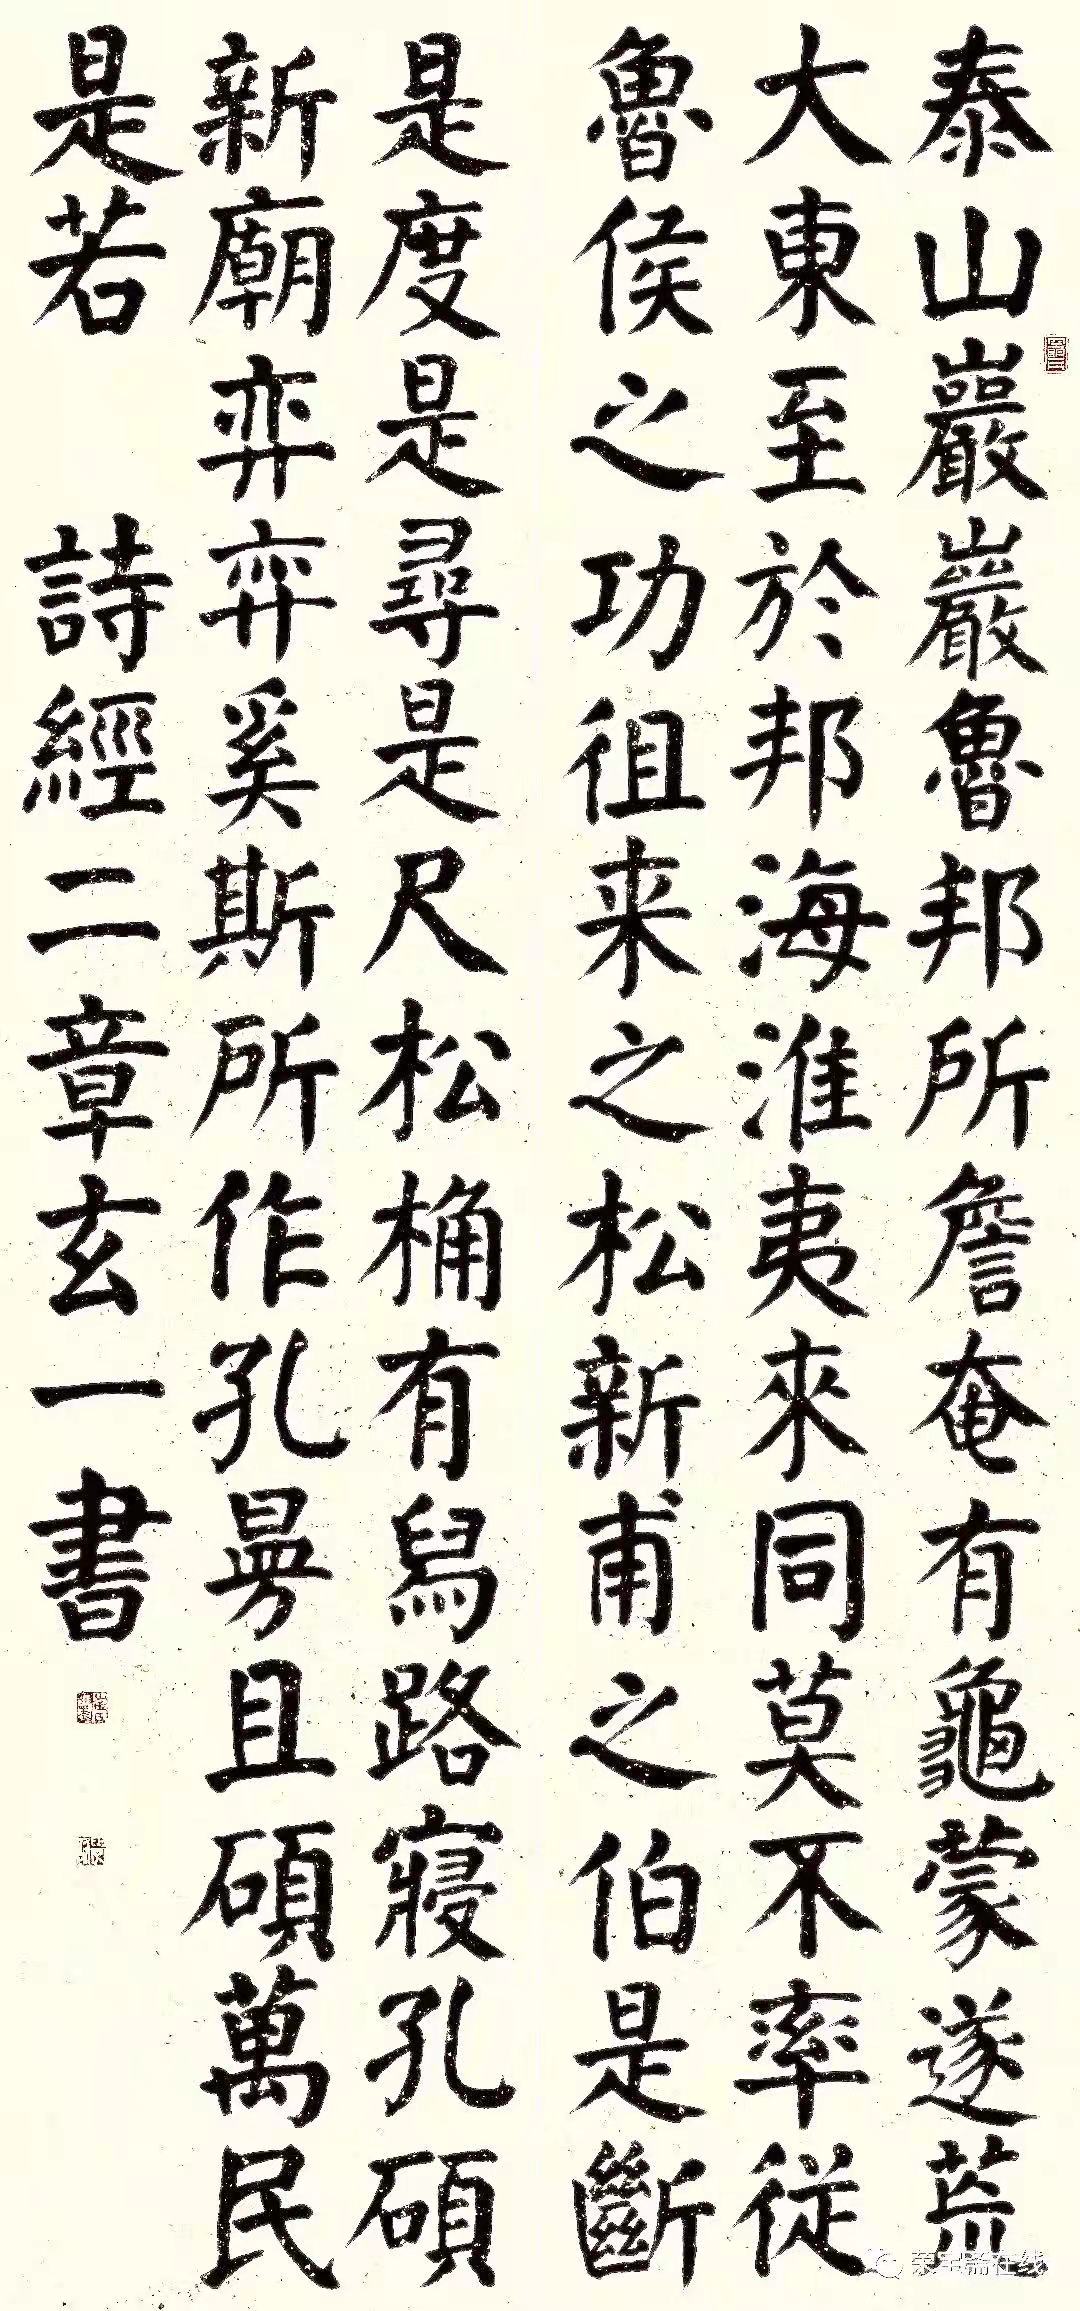 泰山巖巖魯邦所詹奄有龜蒙遂荒
大東至於邦海淮夷來同莫不率従
魯侯之功徂来之松新甫之伯是斷
是度是尋是尺松桷有舄路寢孔碩
新廟弈弈奚斯所作孔曼且碩萬民
是若 詩經二章玄一書
荣宝斋在线